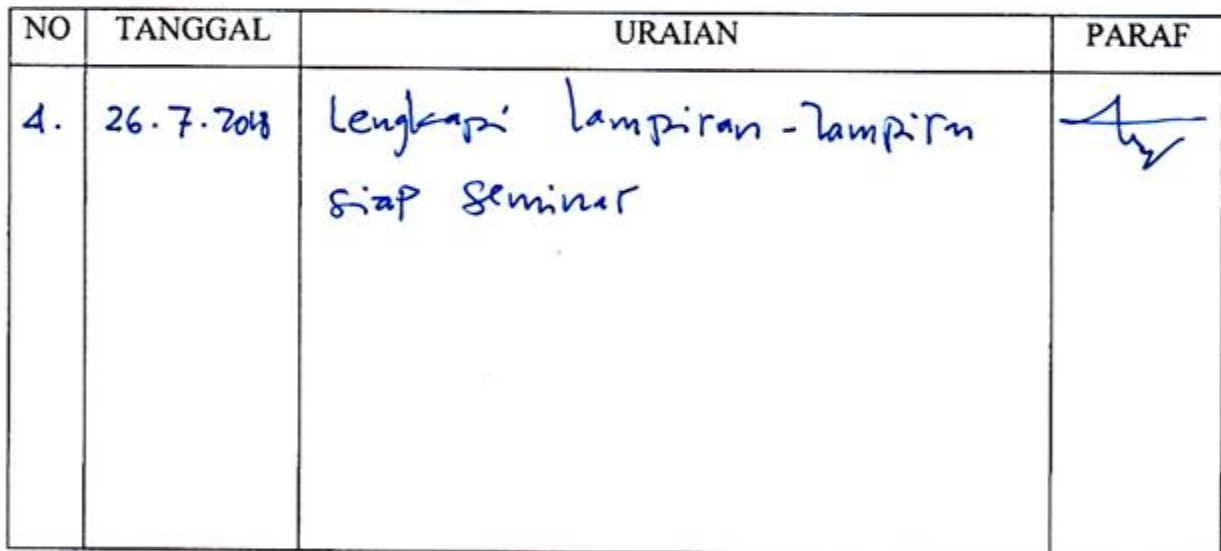 NO TANGGAL URAIAN PARAF
4. 26.7.2018 Lengkapi lampiran-lampirn
siap seminar